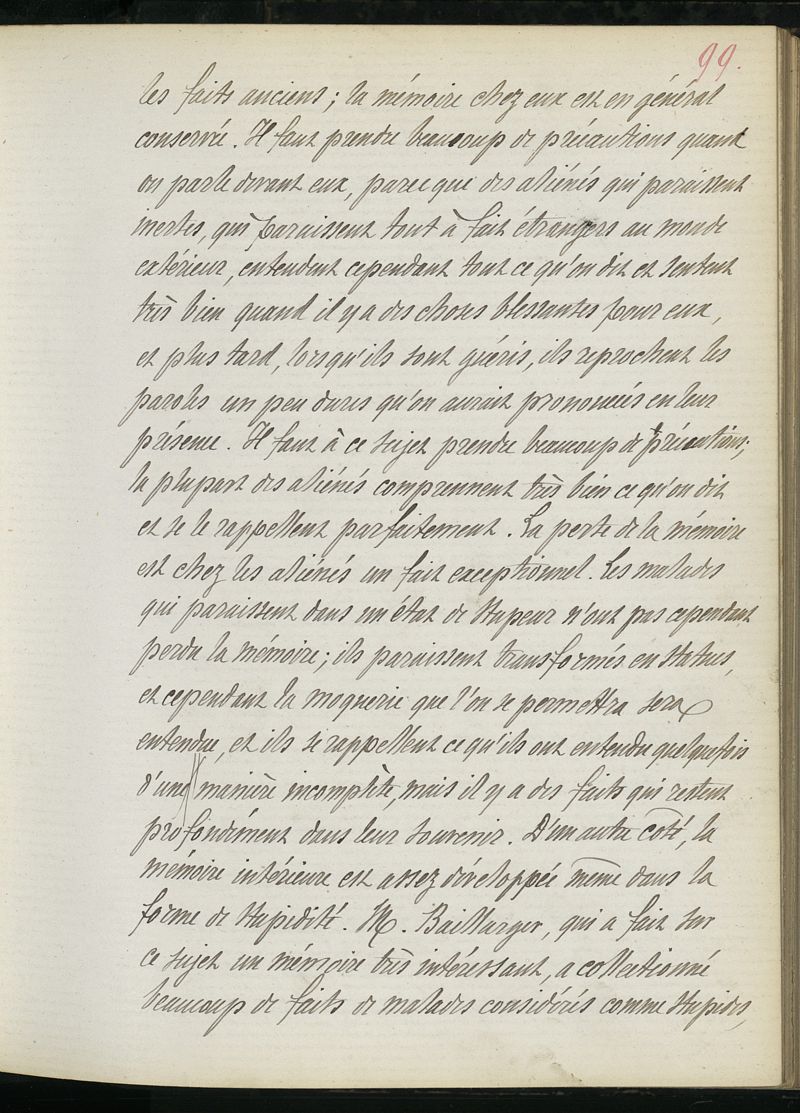 99.
les faits anciens ; la mémoire chez eux est en général
conservée. Il faut prendre beaucoup de précautions quand
on parle devant eux, parce que des aliénés qui paraissent
inertes, qui paraissent tout à fait étrangers au monde
extérieur, entendent cependant tout ce qu'on dit et sentent
très bien quand il y a des choses blessantes pour eux,
et plus tard, lorsqu'ils sont guéris, ils reprochent les
paroles un peu dures qu'on aurait prononcées en leur
présence. Il faut à ce sujet prendre beaucoup de précautions ;
la plupart des aliénés comprennent très bien ce qu'on dit
et se le rappellent parfaitement. La perte de la mémoire
est chez les aliénés un fait exceptionnel. Les malades
qui paraissent dans un état de stupeur n'ont pas cependant
perdu la mémoire ; ils paraissent transformés en statues,
et cependant la moquerie que l'on se permettra sera
entendue, et ils se rappellent ce qu'ils ont entendu quelquefois
d'une manière incomplète, mais il y a des faits qui restent
profondément dans leur souvenir. D'un autre coté, la
mémoire intérieure est assez développée même dans la
forme de stupidité. M. Baillarger, qui a fait sur
ce sujet un mémoire très intéressant, a collectionné
beaucoup de faits de malades considérés comme stupides,